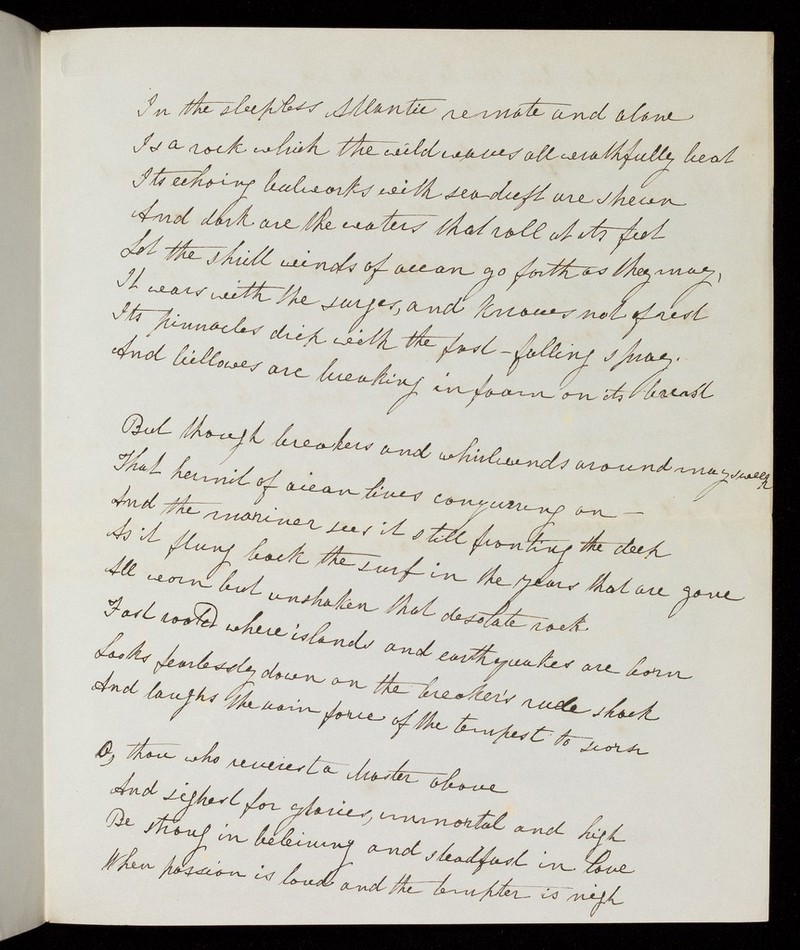 In the sleepless Atlantic remote and alone
Is a rock which the wild waves all wrathfully beat
Its echoing bulwarks with sea-drift are strewn
And dark are the waters that roll at its feet
Let the shrill winds of ocean go forth as they may,
It wars with the surges, and knows not of rest
Its pinnacles drip with the fast-falling spray.
And billows are breaking in foam on its breast
But though breakers and whirlwinds around may swell
That hermit of ocean lives conquering on —
And the mariner sees it still fronting the deep
As it flung back the surf in the years that are gone
All worn but unshaken that desolate rock
Fast rooted where islands and earthquakes are born
Looks fearlessly down on the breaker's rude shock
And laughs the vain force of the tempest to scorn
O, thou who reverest a Master above
And sighest for glories, immortal and high
Be strong in beleiving and steadfast in love
When passion is loud and the tempter is nigh